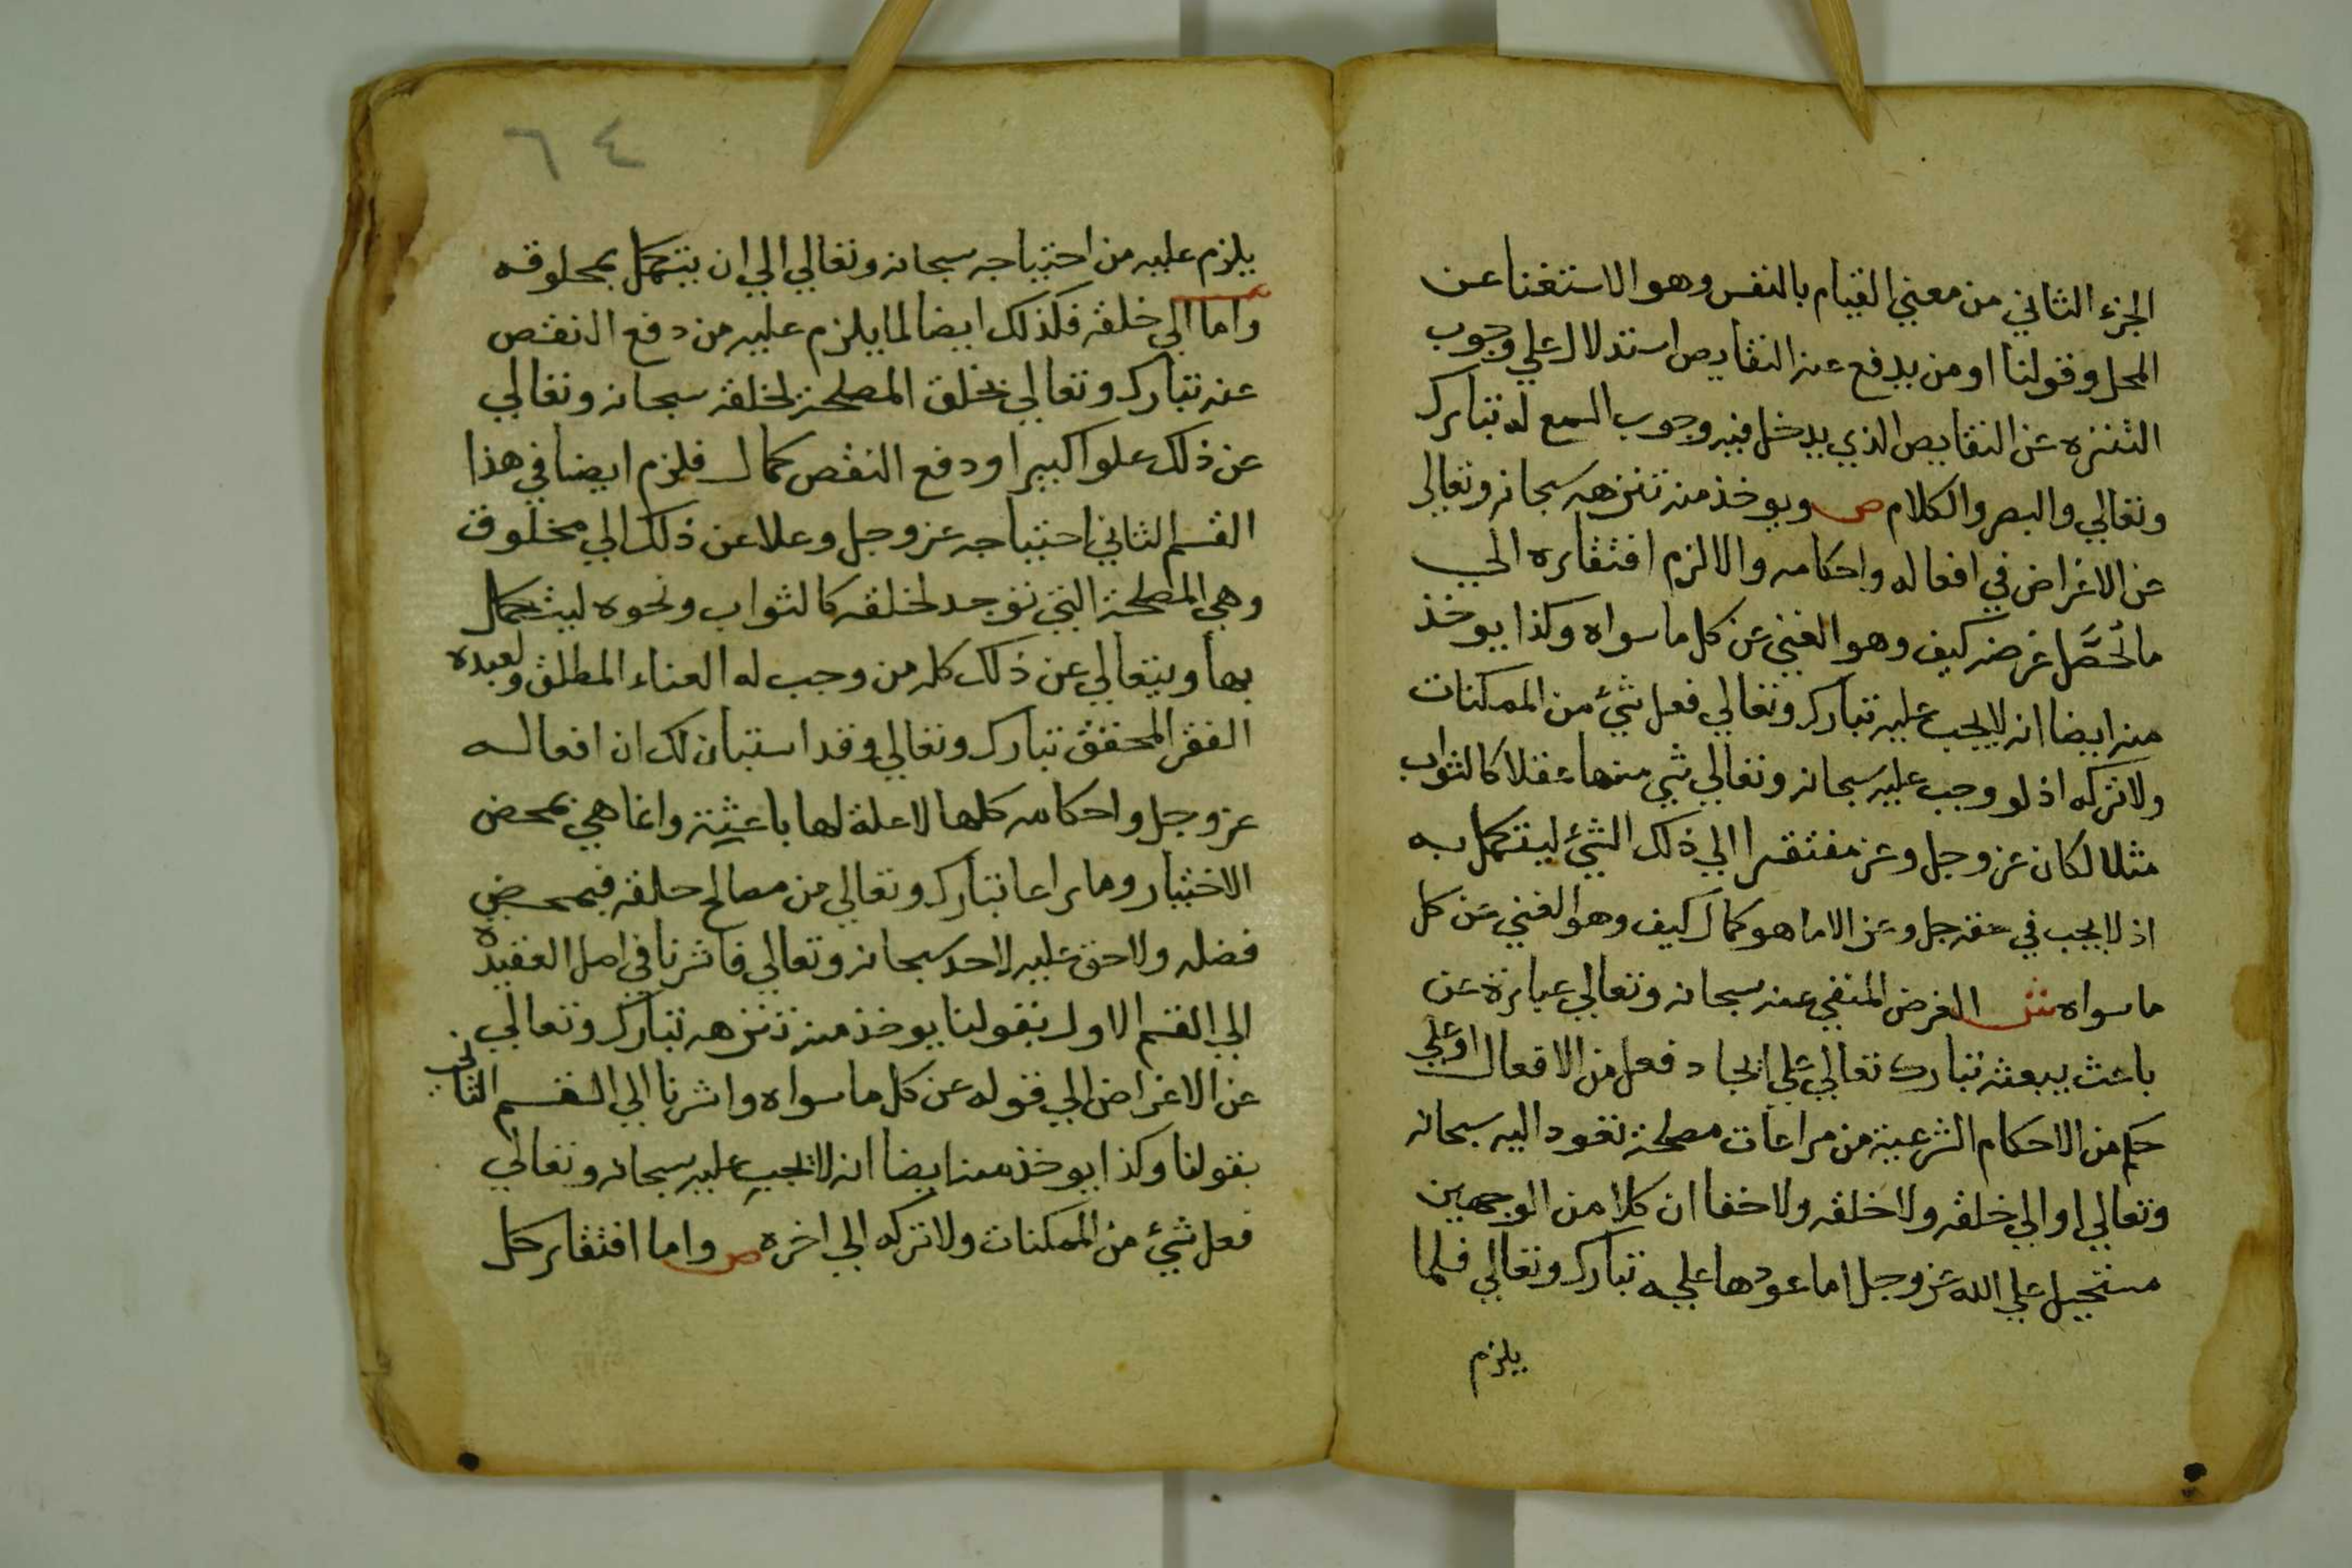 الجزء الثاني من معني القيام بالنفس وهو الاستغنا عن
المحل وقولنا او من يدفع عنه النقايص استدلال علي وجوب
التنزه عن النقايص الذي يدخل فيه وجوب السمع له تبارك
وتعالي والبصر والكلام ص ويوخذ منه تنزهه سبحانه وتعالي
عن الاغراض في افعاله واحكامه والا لزم افتقاره الي
ما يُحصَّل غرضه كيف وهو الغني عن كل ما سواه وكذا يوخذ
منه ايضا انه لا يجب عليه تبارك وتعالي فعل شيء من الممكنات
ولا تركه اذ لو وجب عليه سبحانه وتعالي شي منها عقلا كالثواب
مثلا لكان عز وجل وعز مفتقرا الي ذلك الشيء ليتكمل به
اذ لا يجب في حقه جل وعز الا ما هو كمال كيف وهو الغني عن كل
ما سواه ش الغرض المنفي عنه سبحانه وتعالي عبارة عن
باعث يبعثه تبارك تعالي علي ايجاد فعل من الافعال او علي
حكم من الاحكام الشرعية من مراعات مصلحة تعود اليه سبحانه
وتعالي او الي خلقه ولا خلقه ولا خفا ان كلا من الوجهين
مستحيل علي الله عز وجل اما عودها عليه تبارك وتعالي فلما
يلزم
٦٤
يلزم عليه من احتياجه سبحانه وتعالي الي ان يتكمل بمخلوقه
واما الي خلقه فكذلك ايضا لما يلزم عليه من دفع النقص
عنه تبارك وتعالي بخلق المصلحة لخلقه سبحانه وتعالي
عن ذلك علوا كبيرا ودفع النقص كمال فلزم ايضا في هذا
القسم الثاني احتياجه عز وجل وعلا عن ذلك الي مخلوق
وهي المصلحة التي توجد لخلقه كالثواب ونحوه ليتكمل
بها ويتعالي عن ذلك كله من وجب له الغناء المطلق ولعبده
الفقر المحقق تبارك وتعالي وقد استبان لك ان افعاله
عز وجل واحكامه كلها لا علة لها باعثية وانما هي بمحض
الاختيار وما راعا تبارك وتعالي من مصالح خلقه فبمحض
فضله ولا حق عليه لاحد سبحانه وتعالي فاشرنا في اصل العقيدة
الي القسم الاول بقولنا يوخذ منه تنزهه تبارك وتعالي
عن الاغراض الي قوله عن كل ما سواه واشرنا الي القسم الثاني
بقولنا وكذا يوخذ منه ايضا انه لا يجب عليه سبحانه وتعالي
فعل شيء من الممكنات ولا تركه الي اخره ص واما افتقار كل